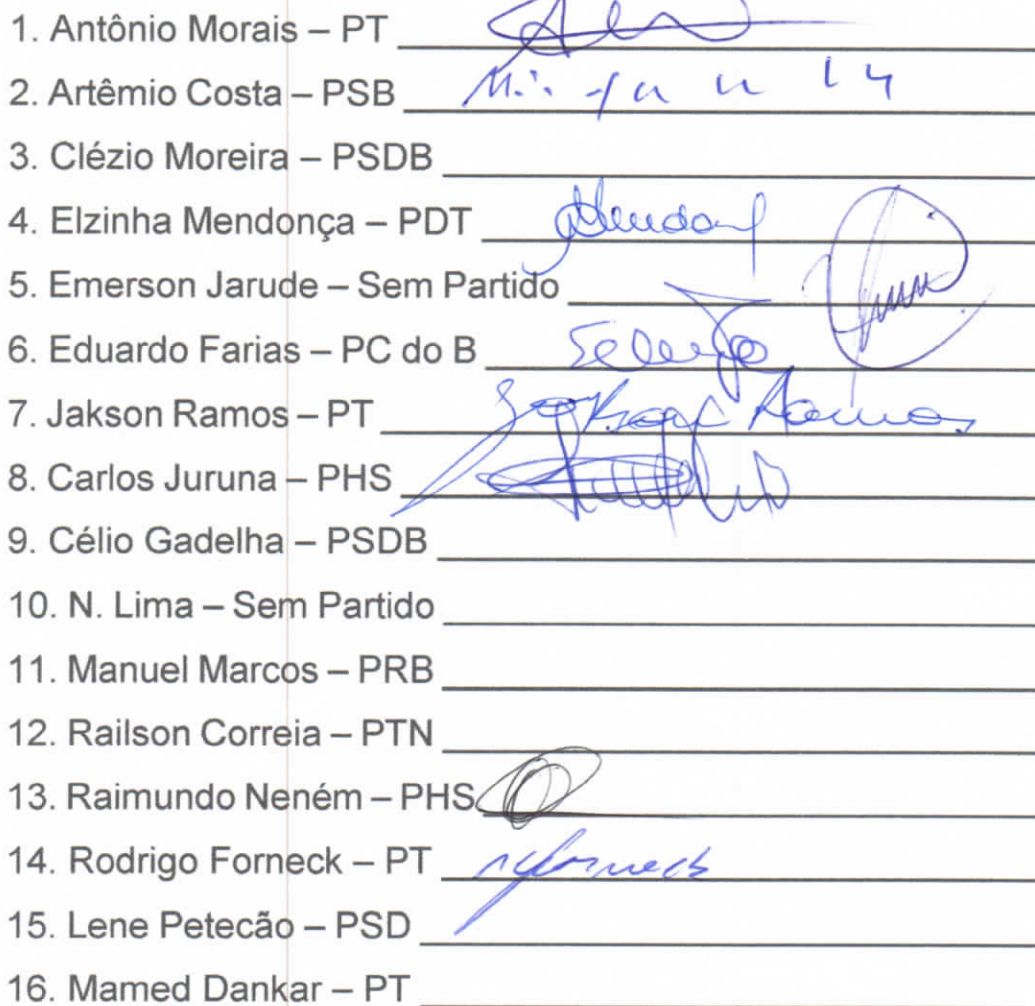 1. Antônio Morais – PT
2. Artêmio Costa – PSB
3. Clézio Moreira – PSDB
4. Elzinha Mendonça – PDT
5. Emerson Jarude – Sem Partido
6. Eduardo Farias – PC do B
7. Jakson Ramos – PT Jakson Ramos
8. Carlos Juruna – PHS
9. Célio Gadelha – PSDB
10. N. Lima – Sem Partido
11. Manuel Marcos – PRB
12. Railson Correia – PTN
13. Raimundo Neném – PHS
14. Rodrigo Forneck – PT
15. Lene Petecão – PSD
16. Mamed Dankar – PT